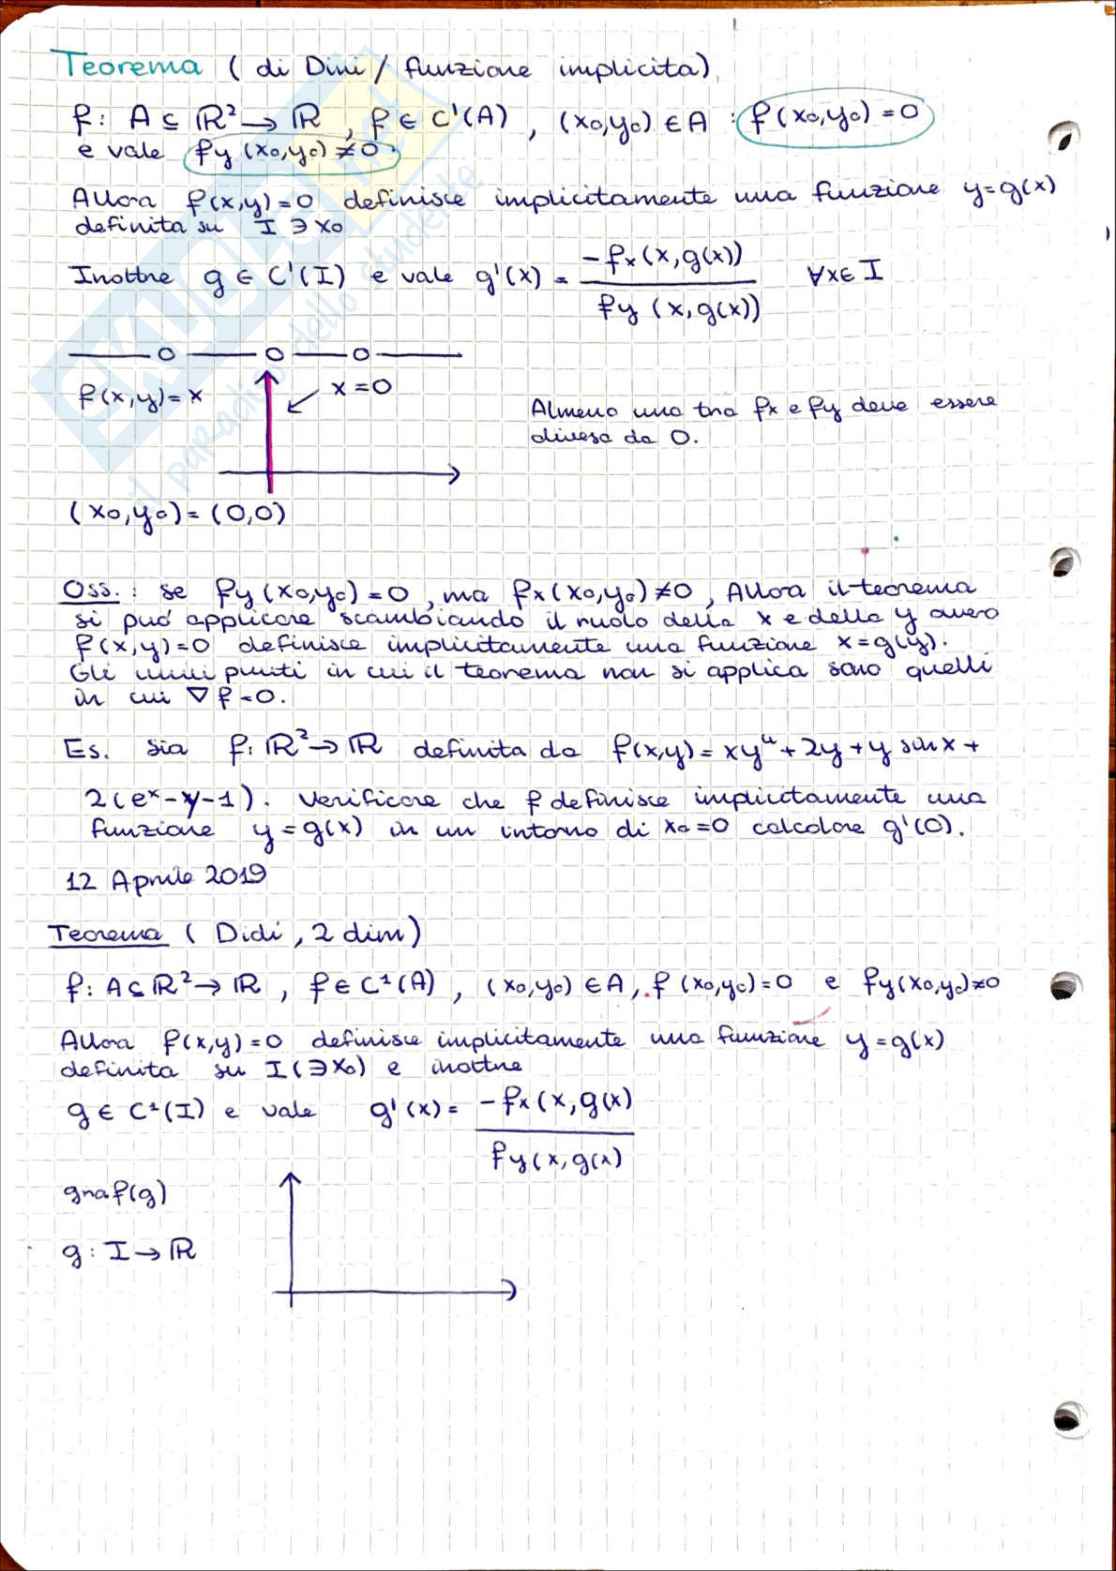 Teorema ( di Dini / funzione implicita)
f: A ⊆ ℝ² → ℝ , f ∈ C'(A) , (x₀,y₀) ∈ A : f(x₀,y₀) = 0
e vale fy (x₀,y₀) ≠ 0.
Allora f(x,y)=0 definisce implicitamente una funzione y=g(x)
definita su I ∋ x₀
Inoltre g ∈ C'(I) e vale g'(x) = -fx(x,g(x)) / fy (x,g(x)) ∀x∈ I
f(x,y)= x
x=0
Almeno una tra fx e fy deve essere
diversa da 0.
(x₀,y₀)=(0,0)
Oss. : se fy(x₀,y₀)=0 , ma fx(x₀,y₀)≠0 , Allora il teorema
si può applicare scambiando il ruolo della x e della y ovvero
f(x,y)=0 definisce implicitamente una funzione x=g(y).
Gli unici punti in cui il teorema non si applica sono quelli
in cui ∇f=0.
Es. Sia f: ℝ² → ℝ definita da f(x,y)= xy⁴+2y+y sinx +
2(eˣ-y-1). Verificare che f definisce implicitamente una
funzione y=g(x) in un intorno di x₀=0 calcolare g'(0).
12 Aprile 2019
Teorema ( Didi , 2 dim)
f: A⊆ℝ² → ℝ , f∈C¹(A) , (x₀,y₀) ∈A, f (x₀,y₀)=0 e fy(x₀,y₀)≠0
Allora f(x,y)=0 definisce implicitamente una funzione y=g(x)
definita su I(∋x₀) e inoltre
g ∈ C¹(I) e vale g'(x)= -fx(x,g(x) / fy(x,g(x)
graf(g)
g: I→ℝ
il paradiso dello studente